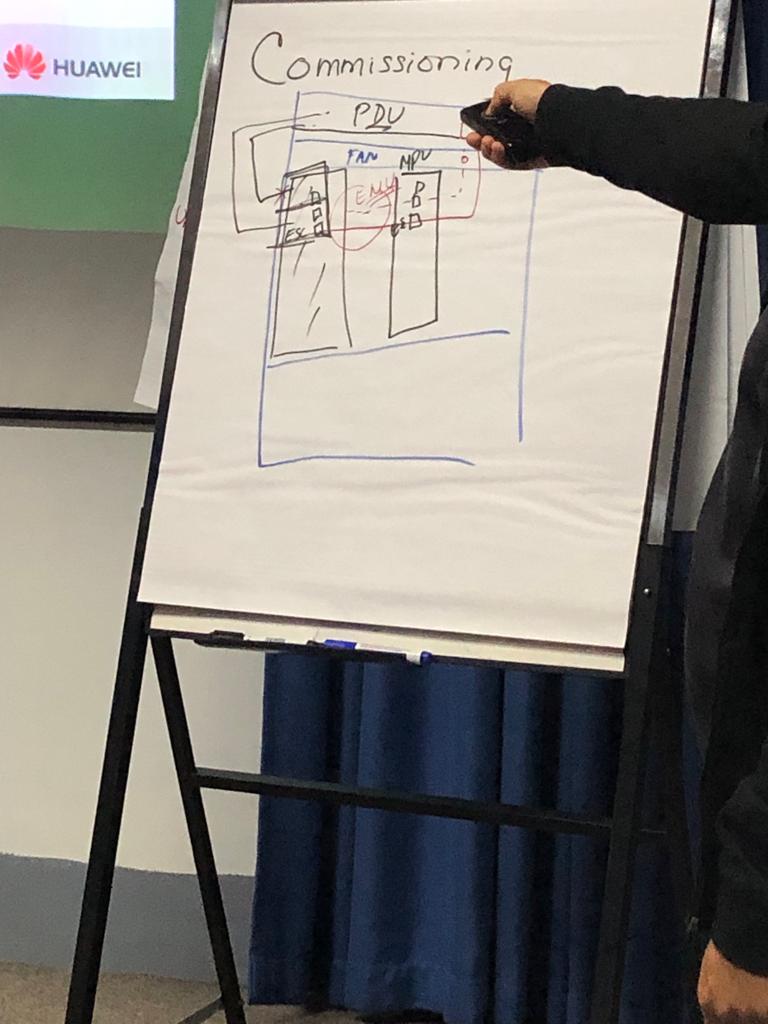 HUAWEI
Commissioning
PDU
FAN
MPU
EMU
ESC